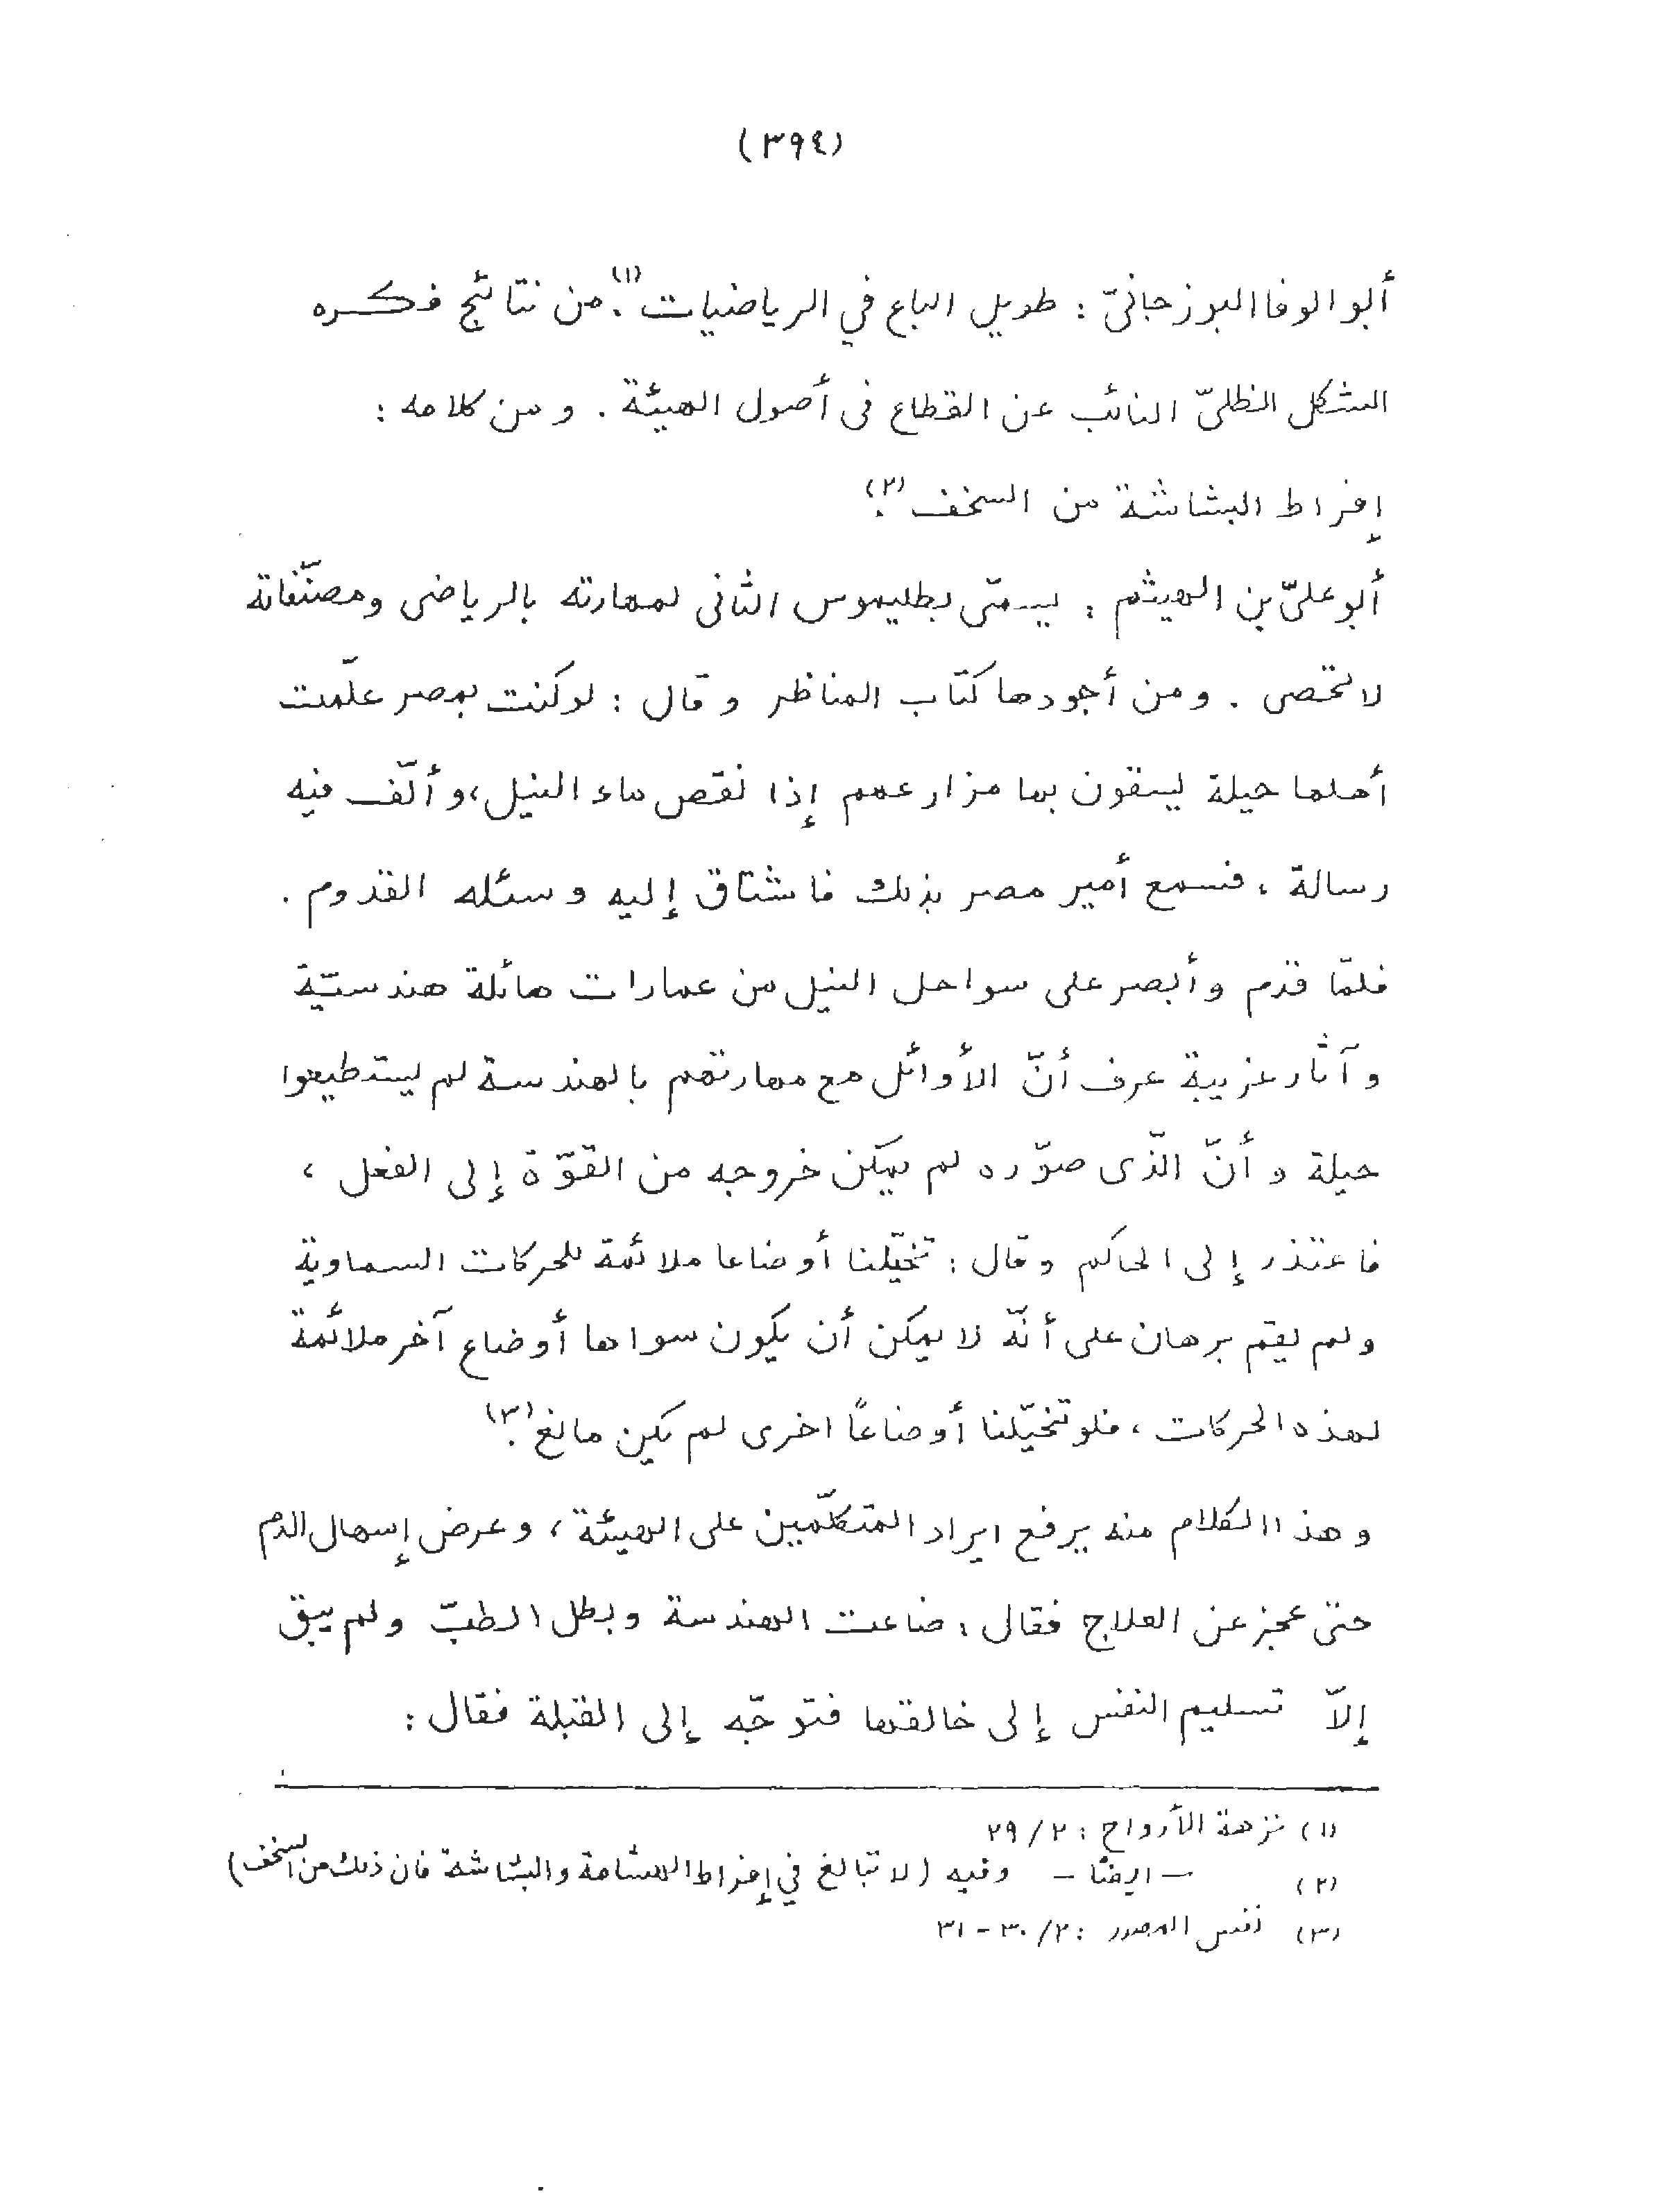 (٣٩٤)
أبو الوفا البوزجانىّ : طويل الباع في الرياضيات(١). من نتائج فكره
الشكل الظلىّ النائب عن القطاع فى أصول الهيئة . و من كلامه :
إفراط البشاشة من السخف(٢).
أبو علىّ بن الهيثم : يسمّى بطليموس الثانى لمهارته بالرياضى ومصنّفاته
لا تحصى . و من أجودها كتاب المناظر و قال : لو كنت بمصر علّمت
أهلها حيلة يسقون بها مزارعهم إذا نقص ماء النيل ، و ألّف فيه
رسالة ، فسمع أمير مصر بذلك فاشتاق إليه و سئله القدوم .
فلمّا قدم و أبصر على سواحل النيل من عمارات هائلة هندسيّة
و آثار غريبة عرف أنّ الأوائل مع مهارتهم بالهندسة لم يستطيعوا
حيلة و أنّ الّذى صوّره لم يمكن خروجه من القوّة إلى الفعل ،
فاعتذر إلى الحاكم و قال : تخيّلنا أوضاعا ملائمة للحركات السماوية
و لم يقم برهان على أنّه لا يمكن أن يكون سواها أوضاع آخر ملائمة
لهذه الحركات ، فلو تخيّلنا أوضاعًا اخرى لم يكن مانع(٣).
و هذا الكلام منه يرفع ايراد المتكلّمين على الهيئة ، و عرض إسهال الدم
حتّى عجز عن العلاج فقال : ضاعت الهندسة و بطل الطبّ و لم يبق
إلاّ تسليم النفس إلى خالقها فتوجّه إلى القبلة فقال :
(١) نزهة الأرواح : ٢٩/٢
(٢) – ايضًا – وفيه (لا تبالغ في إفراط الهشاشة والبشاشة فان ذلك من السخف)
(٣) نفس المصدر : ٣٠/٢ - ٣١